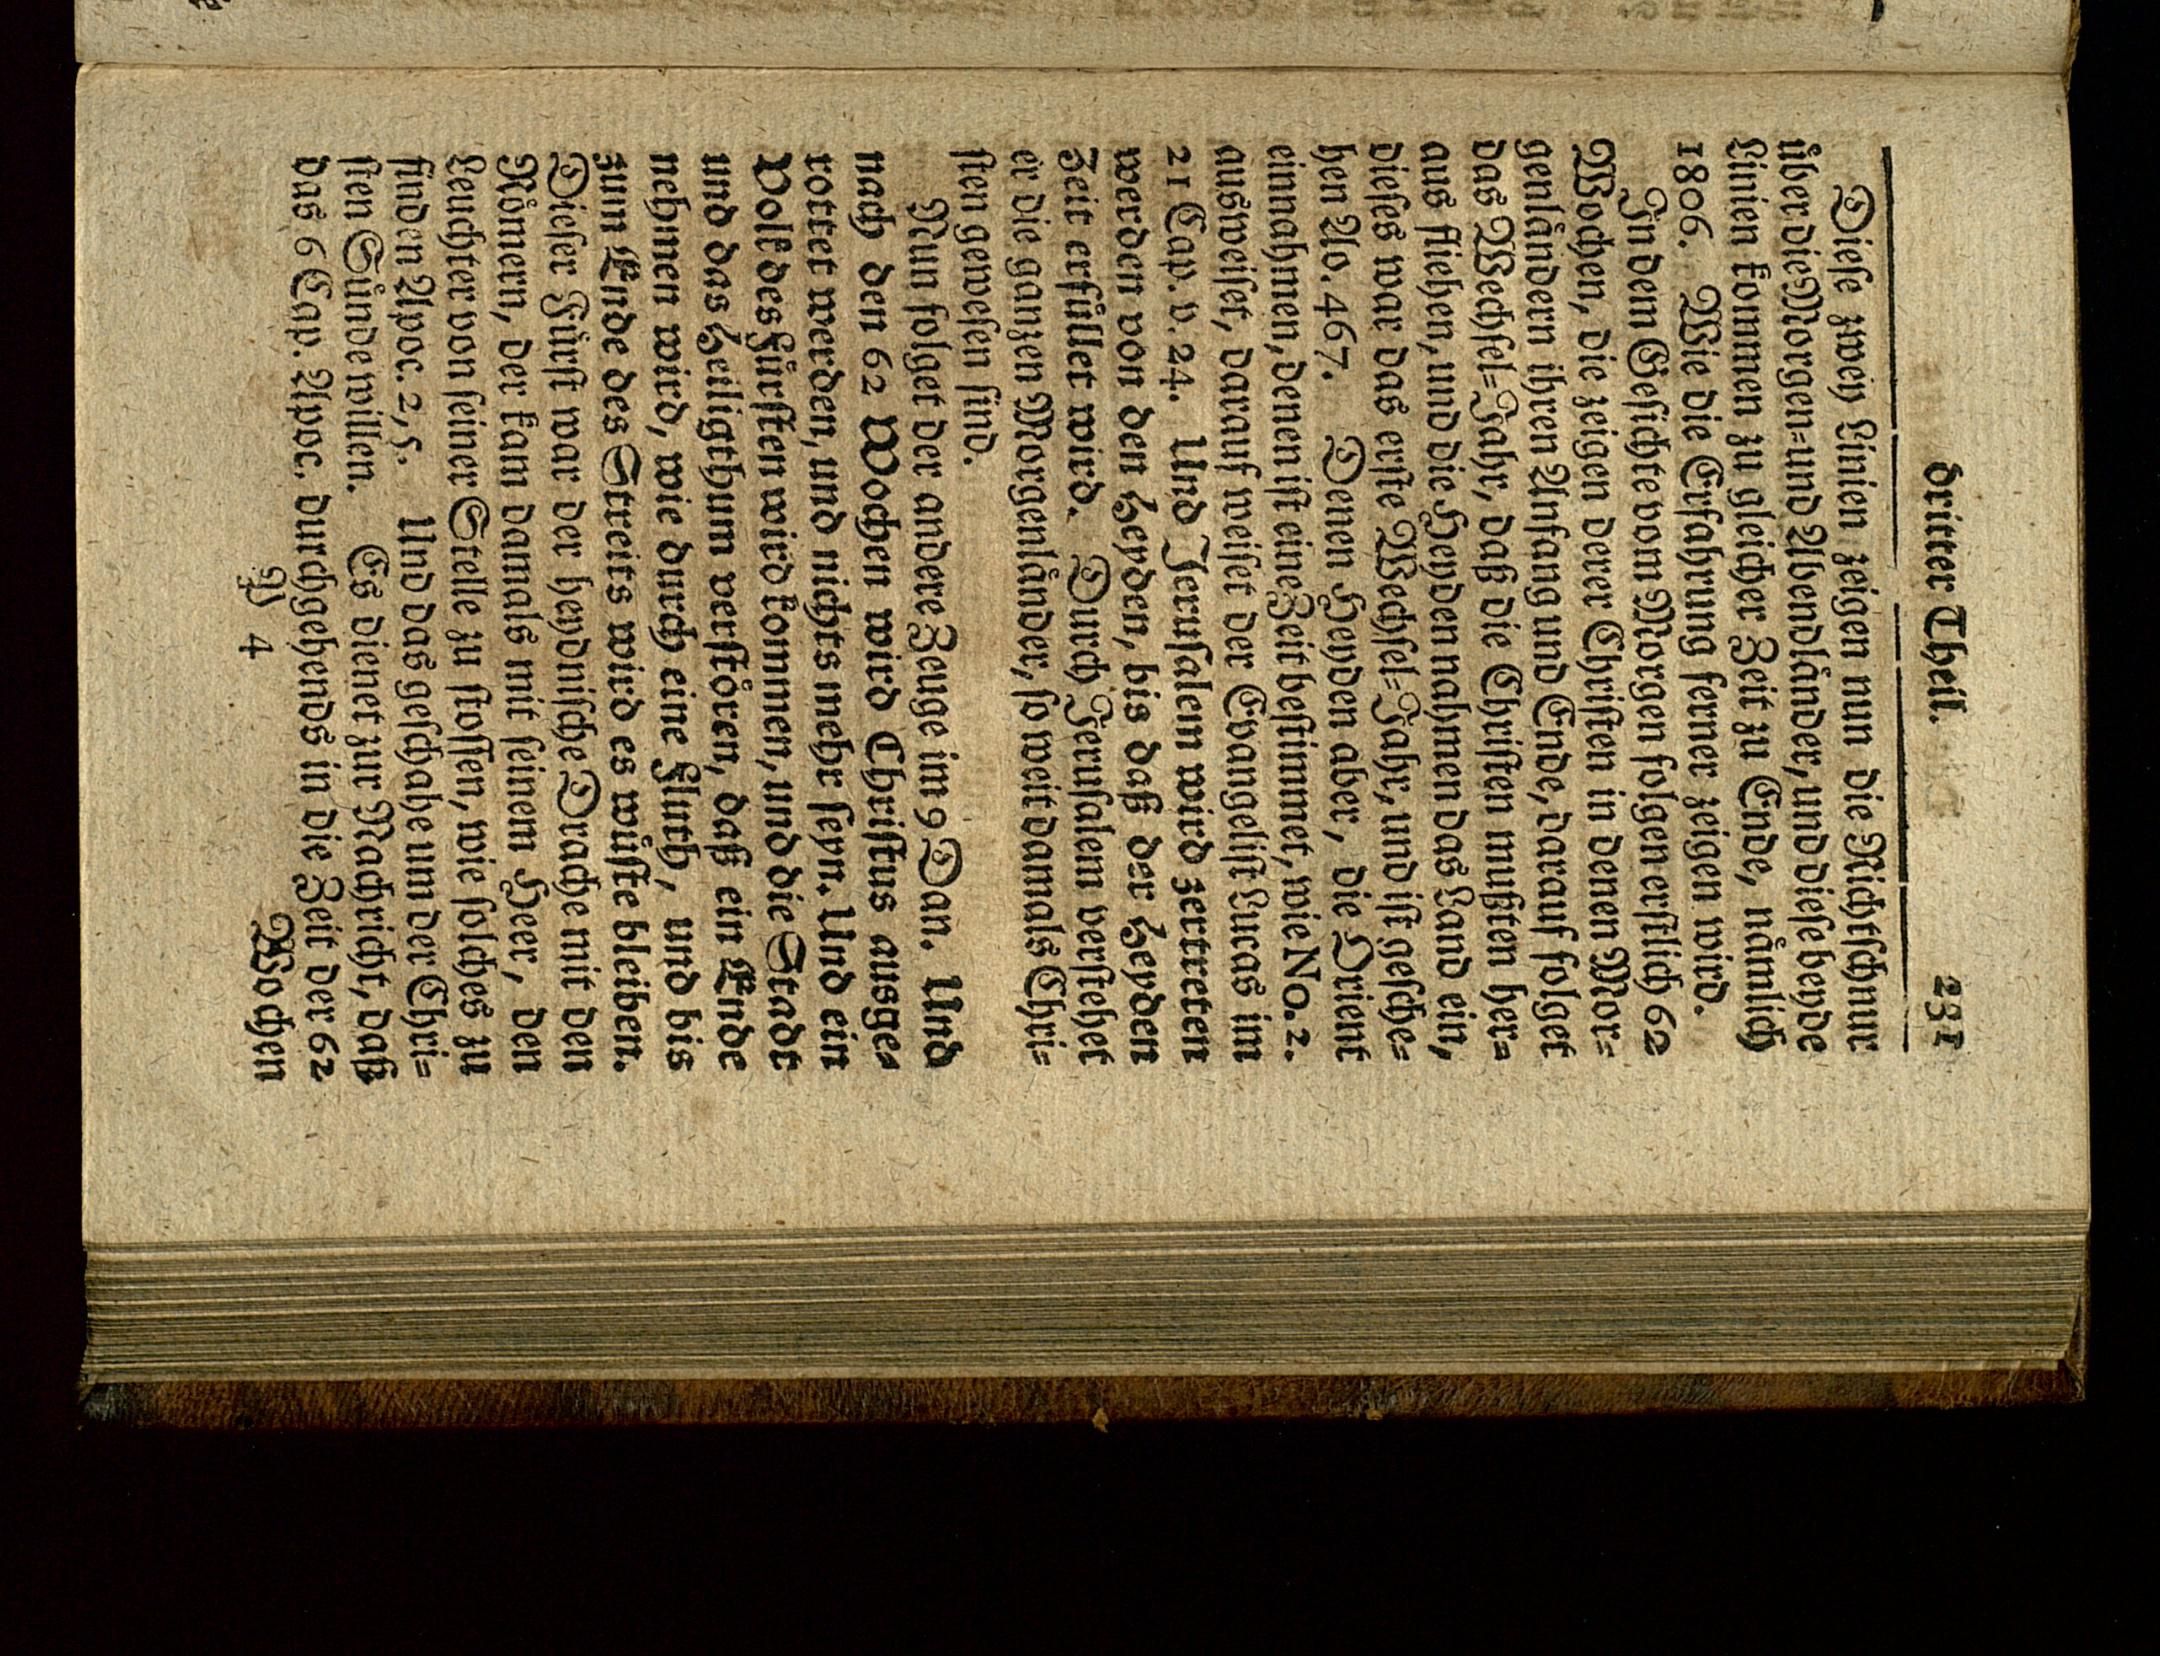 dritter Theil. 231
Diese zwey Linien zeigen nun die Richtschnur
über die Morgen=und Abendländer, und diese beyde
Linien kommen zu gleicher Zeit zu Ende, nämlich
1806. Wie die Erfahrung ferner zeigen wird.
In dem Gesichte vom Morgen folgen erstlich 62
Wochen, die zeigen derer Christen in denen Mor=
genländern ihren Anfang und Ende, darauf folget
das Wechsel=Jahr, daß die Christen mußten her=
aus fliehen, und die Heyden nahmen das Land ein,
dieses war das erste Wechsel=Jahr, und ist gesche=
hen Ao. 467. Denen Heyden aber, die Orient
einnahmen, denen ist eine Zeit bestimmet, wie No. 2.
ausweiset, darauf weiset der Evangelist Lucas im
21 Cap. v. 24. Und Jerusalem wird zertreten
werden von den Heyden, bis daß der Heyden
Zeit erfüllet wird. Durch Jerusalem verstehet
er die ganzen Morgenländer, so weit damals Chri=
sten gewesen sind.
Nun folget der andere Zeuge im 9 Dan. Und
nach den 62 Wochen wird Christus ausge=
rottet werden, und nichts mehr seyn. Und ein
Volk des Fürsten wird kommen, und die Stadt
und das Heiligthum verstören, daß ein Ende
nehmen wird, wie durch eine Fluth, und bis
zum Ende des Streits wird es wüste bleiben.
Dieser Fürst war der heydnische Drache mit den
Römern, der kam damals mit seinem Heer, den
Leuchter von seiner Stelle zu stossen, wie solches zu
finden Apoc. 2, 5. Und das geschahe um der Chri=
sten Sünde willen. Es dienet zur Nachricht, daß
das 6 Cap. Apoc. durchgehends in die Zeit der 62
P 4 Wochen